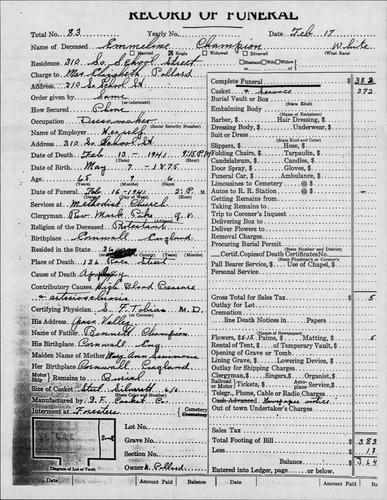 RECORD OF FUNERAL
Total No. 83 Yearly No. Date Feb 17
Name of Deceased Emmeline Champion White
Married Single Widowed Divorced (What Race)
Residence 210 So School Street Husband Wife Widow
Charge to Mrs Elizabeth Pollard
Address 210 So School St
Order given by Same
(or informant)
How Secured Phone
Occupation Dressmaker
(Social Security Number)
Name of Employer Herself
Address 210 So School St
Date of Death Feb 13 - 1941 9:15 P.M
Date of Birth May 7 1875
Age 65 9 6
(Years) (Months) (Days)
Date of Funeral Feb 16 - 1941 2 P. M.
Services at Methodist Church
Clergyman Rev. Mark Pike G. V.
Religion of the Deceased Protestant
Birthplace Cornwall England
Resided in the State 36
(Years) (Months)
Place of Death 126 Race Street
Cause of Death Apoplexy
Contributory Causes High Blood Pressure
& arteriosclerosis
Certifying Physician S. F. Tobias M. D.
His Address Grass Valley
Name of Father Bennett Champion
His Birthplace Cornwall Eng
Maiden Name of Mother Mary Ann Simmons
Her Birthplace Cornwall England
Motor Ship Remains to Burial
Size of Casket
(State Color and Number)
Manufactured by S.F. Casket Co.
Interment at Foresters Cemetery
Crematory
Lot No.
Grave No.
Section No.
Diagram of Lot or Vault Owner Pollard
Complete Funeral $ 382
Casket & Services 372
Burial Vault or Box
(State Kind)
Embalming Body
(Name of Embalmer)
Barber, $ Hair Dressing, $
Dressing Body, $ Underwear, $
Suit or Dress
(State Kind and Color)
Slippers, $ Hose, $
Folding Chairs, $ Tarpaulin, $
Candelabrum, $ Candles, $
Door Spray, $ Gloves, $
Funeral Car, $ Ambulance, $
Limousines to Cemetery @ $
Autos to R. R. Station @ $
Getting Remains from
Taking Remains to
Trip to Coroner's Inquest
Delivering Box to
Deliver Flowers to
Removal Charges
Procuring Burial Permit
(State Number and District)
Certif. Copies of Death Certificates No.
(State Physician's or Coroner's)
Pall Bearer Service, $ Use of Chapel, $
Personal Service
Gross Total for Sales Tax $ 5
Outlay for Lot
Cremation
line Death Notices in Papers
(Names of Newspapers)
Flowers, $ Palms, $ Matting, $ 5
Rental of Tent, $ of Temporary Vault, $
Opening of Grave or Tomb
Lining Grave, $ Lowering Device, $
Outlay for Shipping Charges
Clergyman, $ Singers, $ Organist, $
Railroad Motor Tickets, $ Aeroplane Service, $
Telegr., Phone, Cable or Radio Charges
Cash Advanced Newspaper notices
Out of town Undertaker's Charges
Sales Tax
Total Footing of Bill $ 383
Less
Balance $
Entered into Ledger, page or below.
Date Amount Paid Balance Date Amount Paid